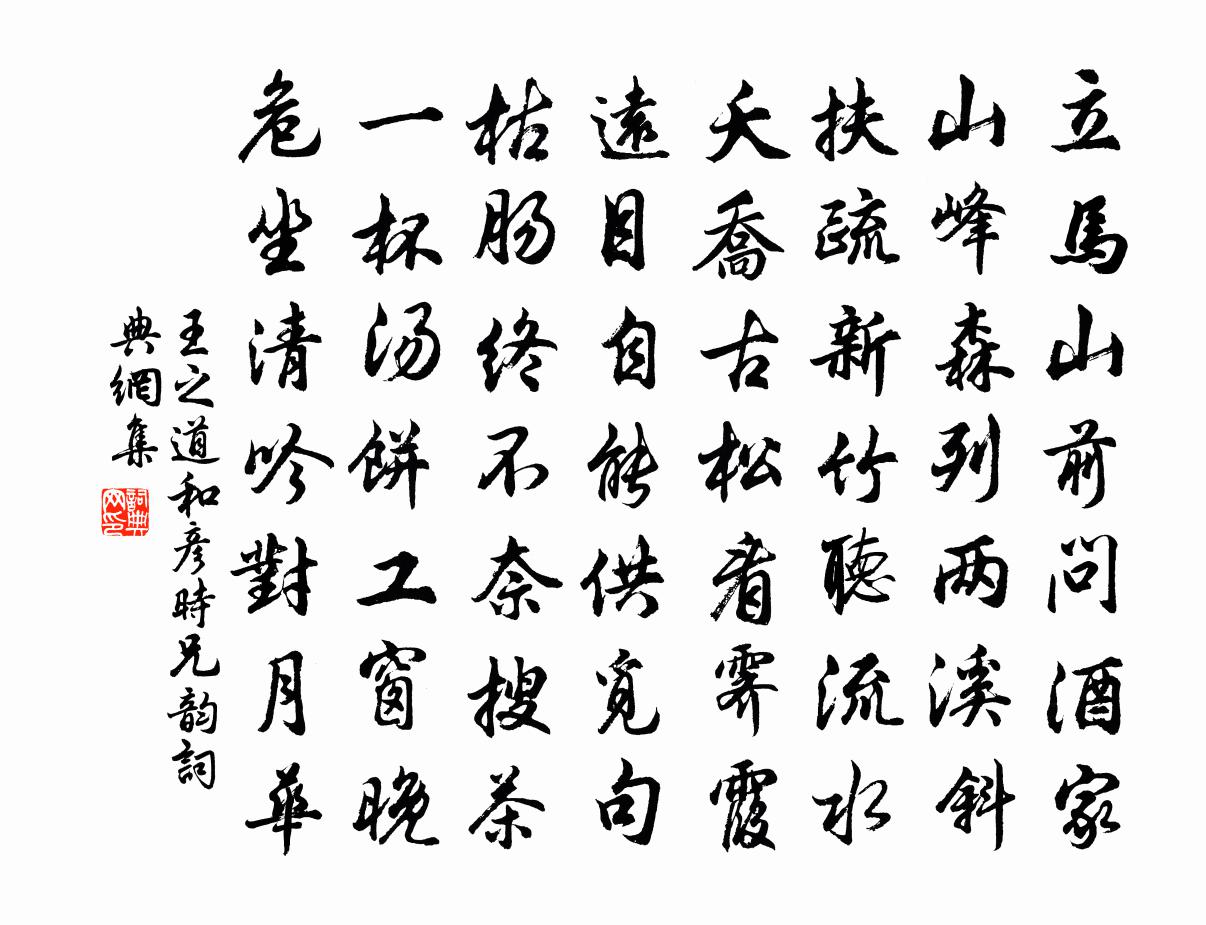 立馬山前問酒家
山峰森列兩溪斜
扶疏新竹聽流水
夭喬古松看霽霞
遠目自能供覓句
枯腸終不奈搜茶
一杯湯餅工窗晚
危坐清吟對月華
王之道和彥時兄韵詞
典網集
詞典网印